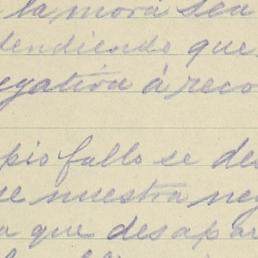 la mora sea
dendiendo que
egativa á reco
pio fallo se des
ue nuestra neg
a que desapar